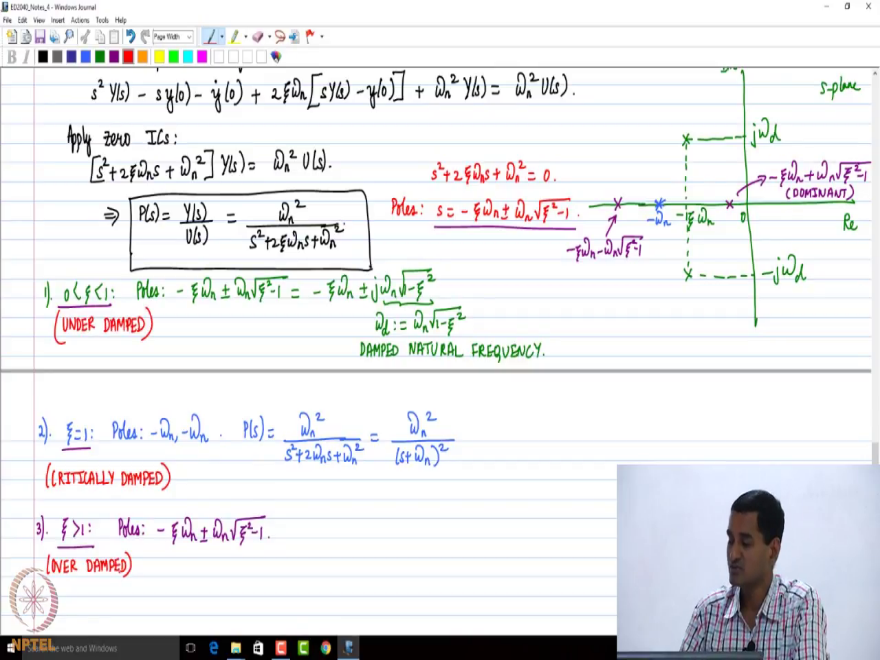 ED2040_Notes_4 - Windows Journal
File Edit View Insert Actions Tools Help
Page Width
B I
s² Y(s) - s y(0) - ẏ(0) + 2ξωₙ[sY(s) - y(0)] + ωₙ² Y(s) = ωₙ² U(s).
Apply zero ICs:
[s² + 2ξωₙs + ωₙ²] Y(s) = ωₙ² U(s).
⇒ P(s) = Y(s)/U(s) = ωₙ²/(s² + 2ξωₙs + ωₙ²)
s² + 2ξωₙs + ωₙ² = 0.
Poles: s = -ξωₙ ± ωₙ√(ξ²-1).
s-plane
jωd
-ξωₙ + ωₙ√(ξ²-1)
(DOMINANT)
-ωₙ
-ξωₙ
0
Re
-ξωₙ - ωₙ√(ξ²-1)
-jωd
1). 0<ξ<1: Poles: -ξωₙ ± ωₙ√(ξ²-1) = -ξωₙ ± jωₙ√(1-ξ²)
(UNDER DAMPED)
ωd := ωₙ√(1-ξ²)
DAMPED NATURAL FREQUENCY.
2). ξ=1: Poles: -ωₙ, -ωₙ. P(s) = ωₙ²/(s² + 2ωₙs + ωₙ²) = ωₙ²/(s+ωₙ)²
(CRITICALLY DAMPED)
3). ξ>1: Poles: -ξωₙ ± ωₙ√(ξ²-1).
(OVER DAMPED)
NPTEL
the web and Windows